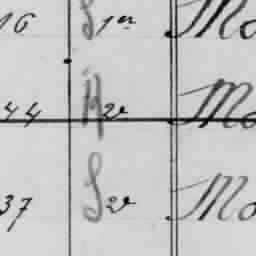 16 S 1er Mo
44 H 2e Mo
37 S 2e Mo